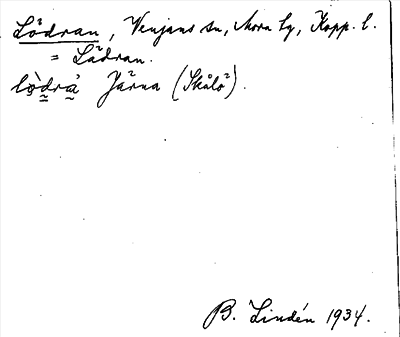 Lödran, Venjans sn, Mora hg, Kopp. l.
= Lädran.
lo̖̊dra Järna (Skålö).
B. Lindén 1934.